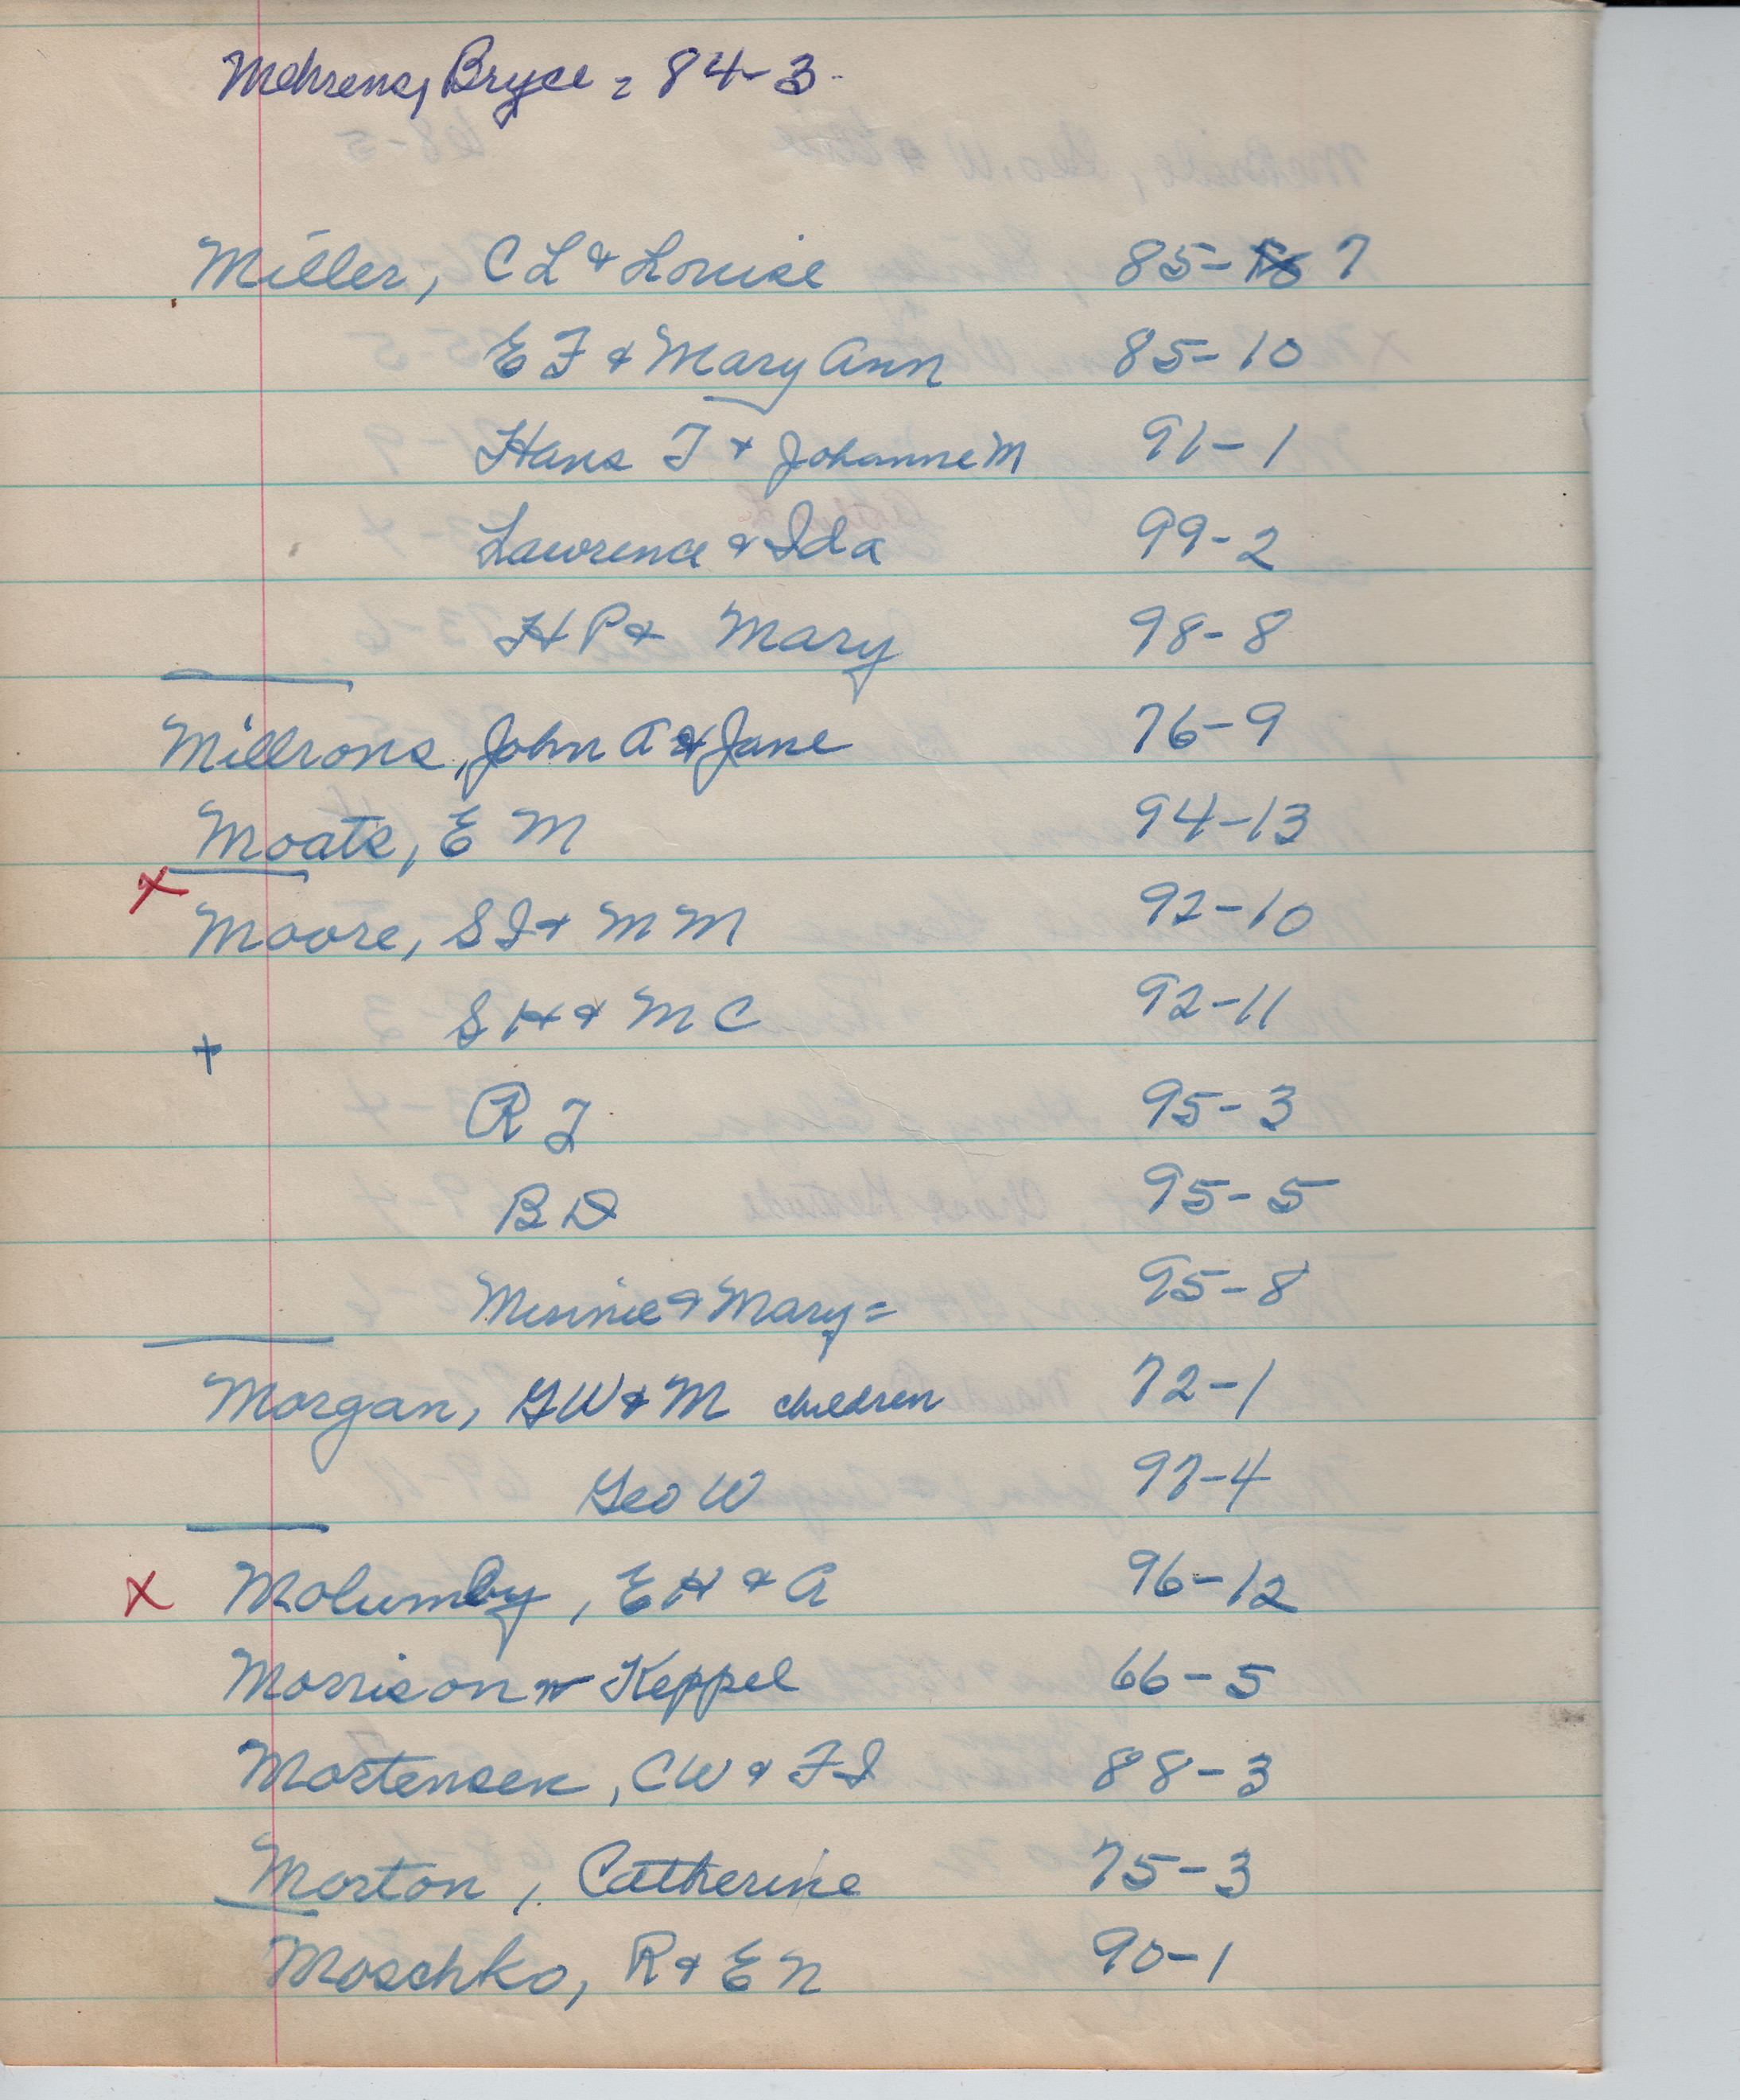 Mehrens, Bryce = 84-3.
Miller, C L & Louise 85- 7
E F & Mary Ann 85-10
Hans J & Johanne M 91-1
Lawrence & Ida 99-2
H P & Mary 98-8
Millrons, John A & Jane 76-9
Moats, E M 94-13
x
Moore, S I & M M 92-10
S H & M C 92-11
+
R J 95-3
B D 95-5
Minnie & Mary = 95-8
Morgan, G W & M children 72-1
Geo W 97-4
x Molumby, E H & A 96-12
Morrison Keppel 66-5
Mortensen, C W & F I 88-3
Morton, Catherine 75-3
Moschko, R & E N 90-1